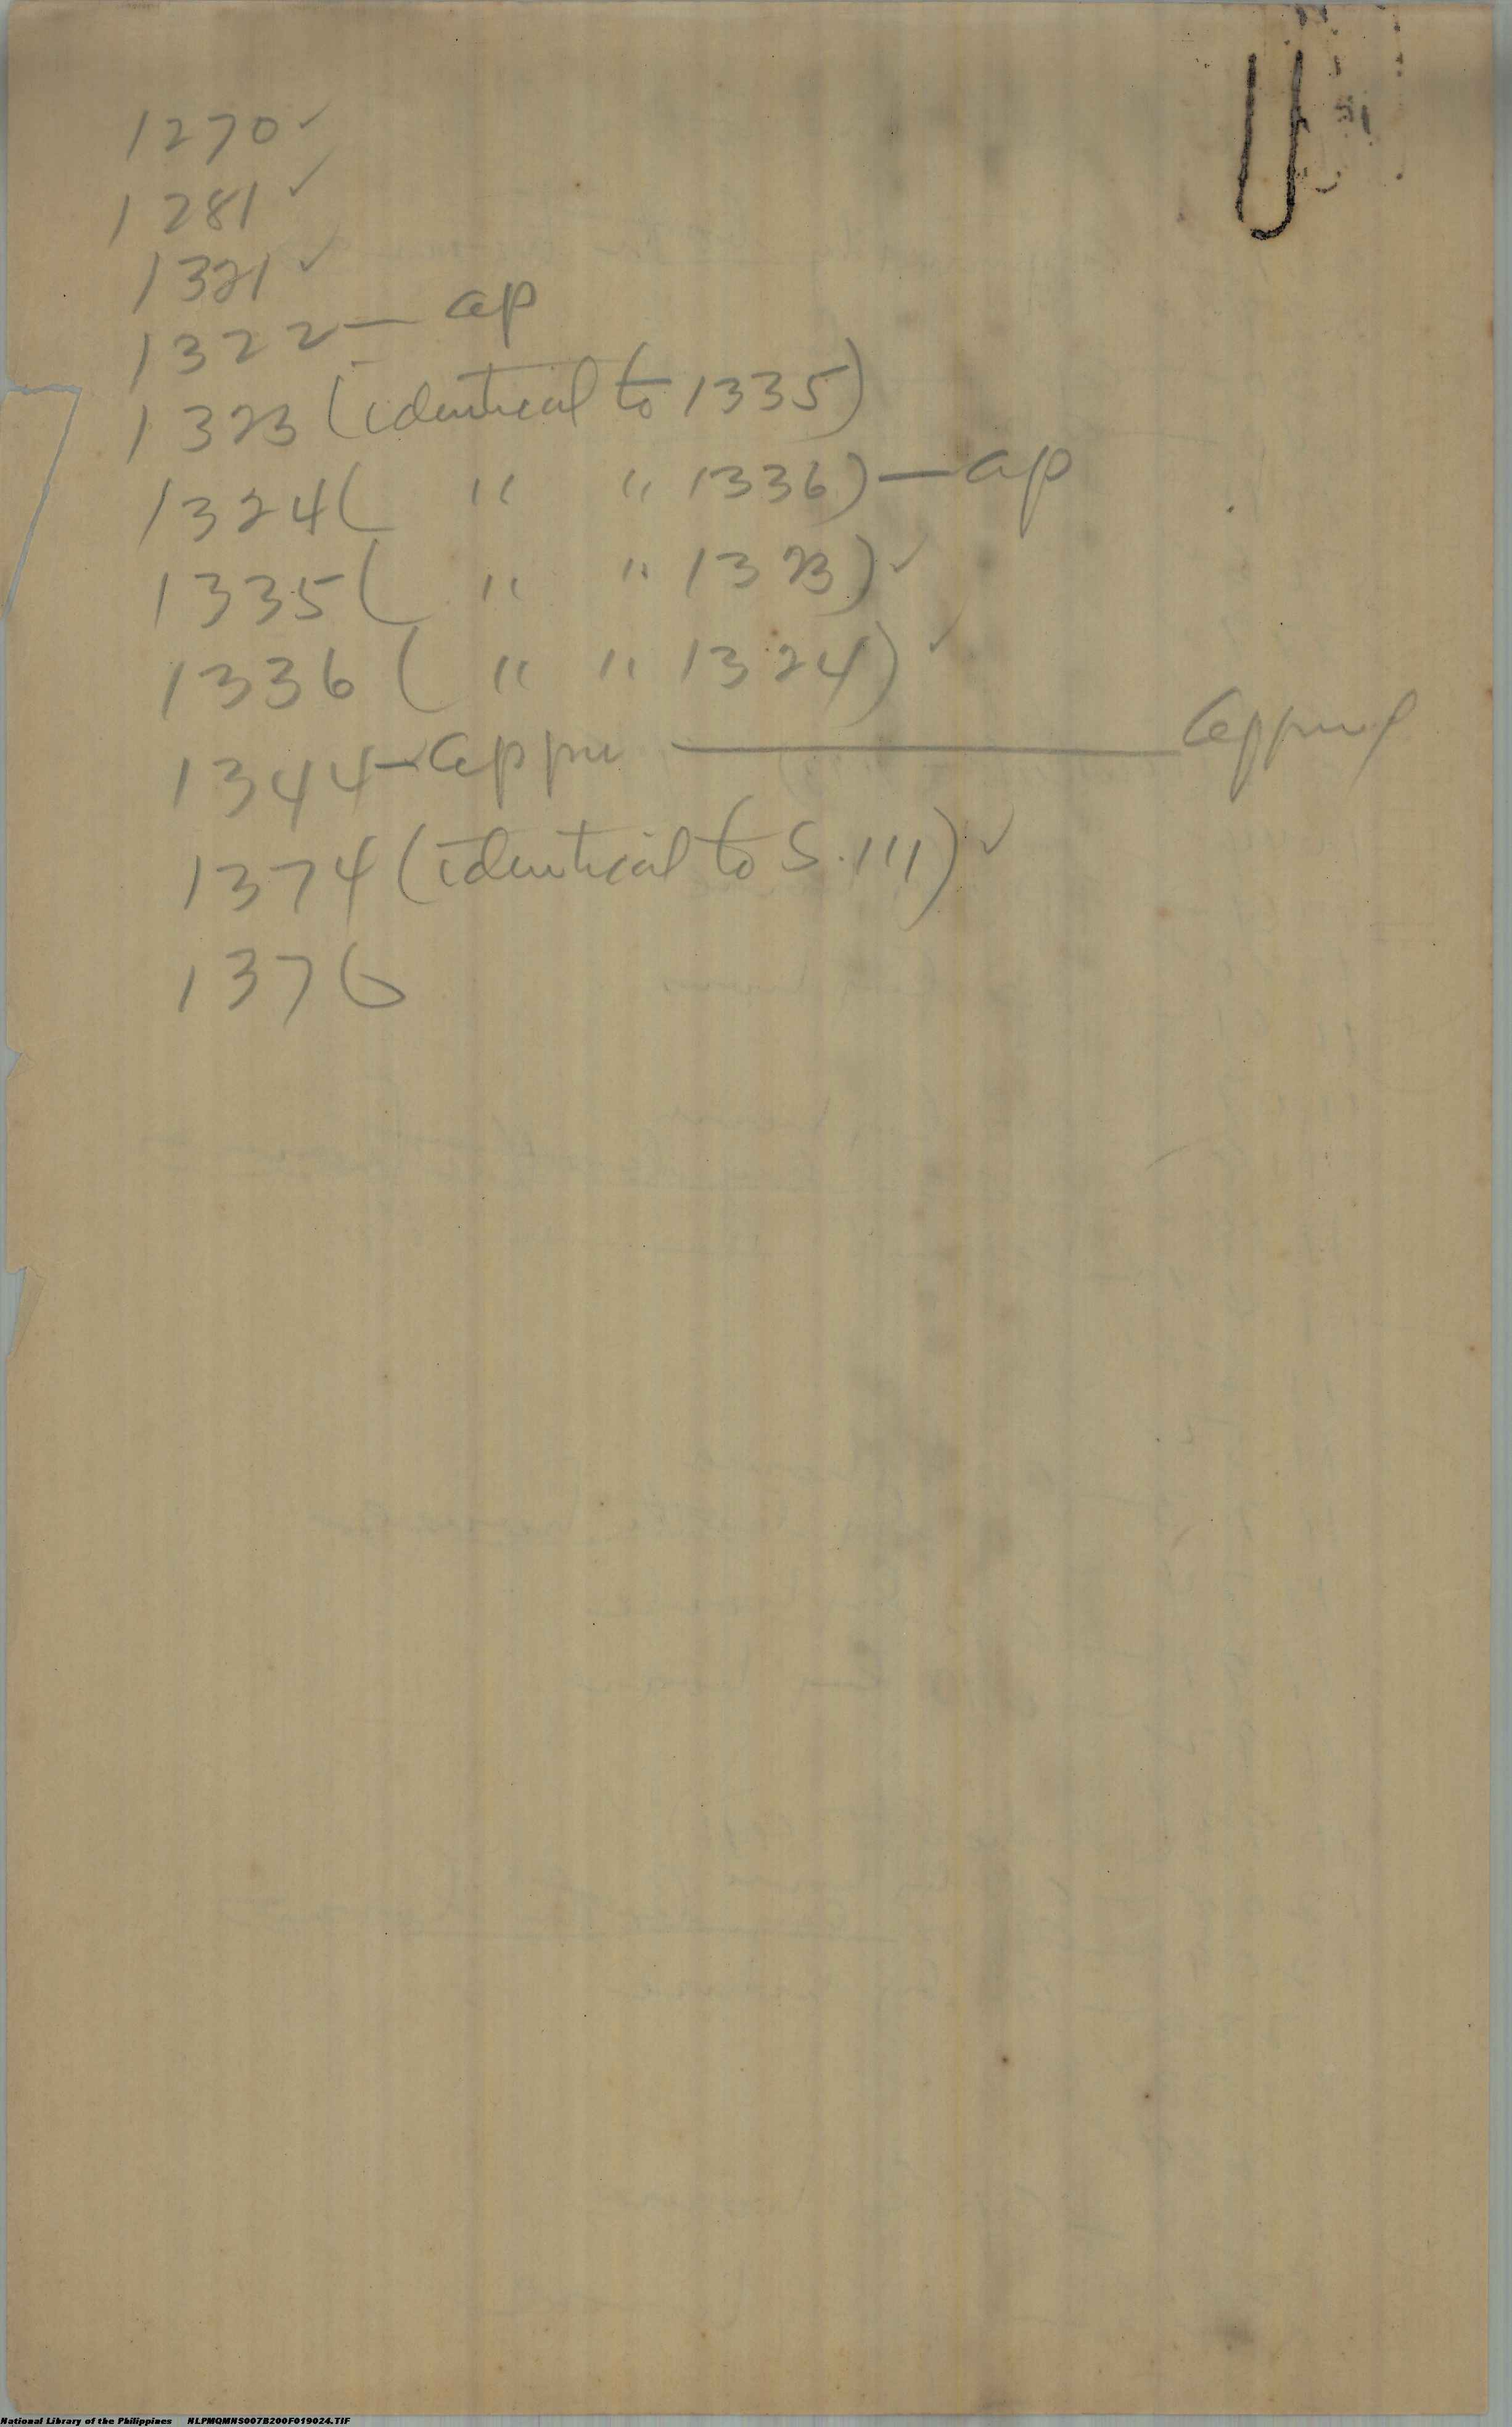 1270 ✓
1281 ✓
1321 ✓
1322 — ap
1323 (identical to 1335)
1324 ( " " 1336) — ap
1335 ( " " 1323) ✓
1336 ( " " 1324) ✓
1344 — appu ——— Appruf
1374 (identical to S. 111) ✓
1376
National Library of the Philippines NLPMQMNS007B200F019024.TIF